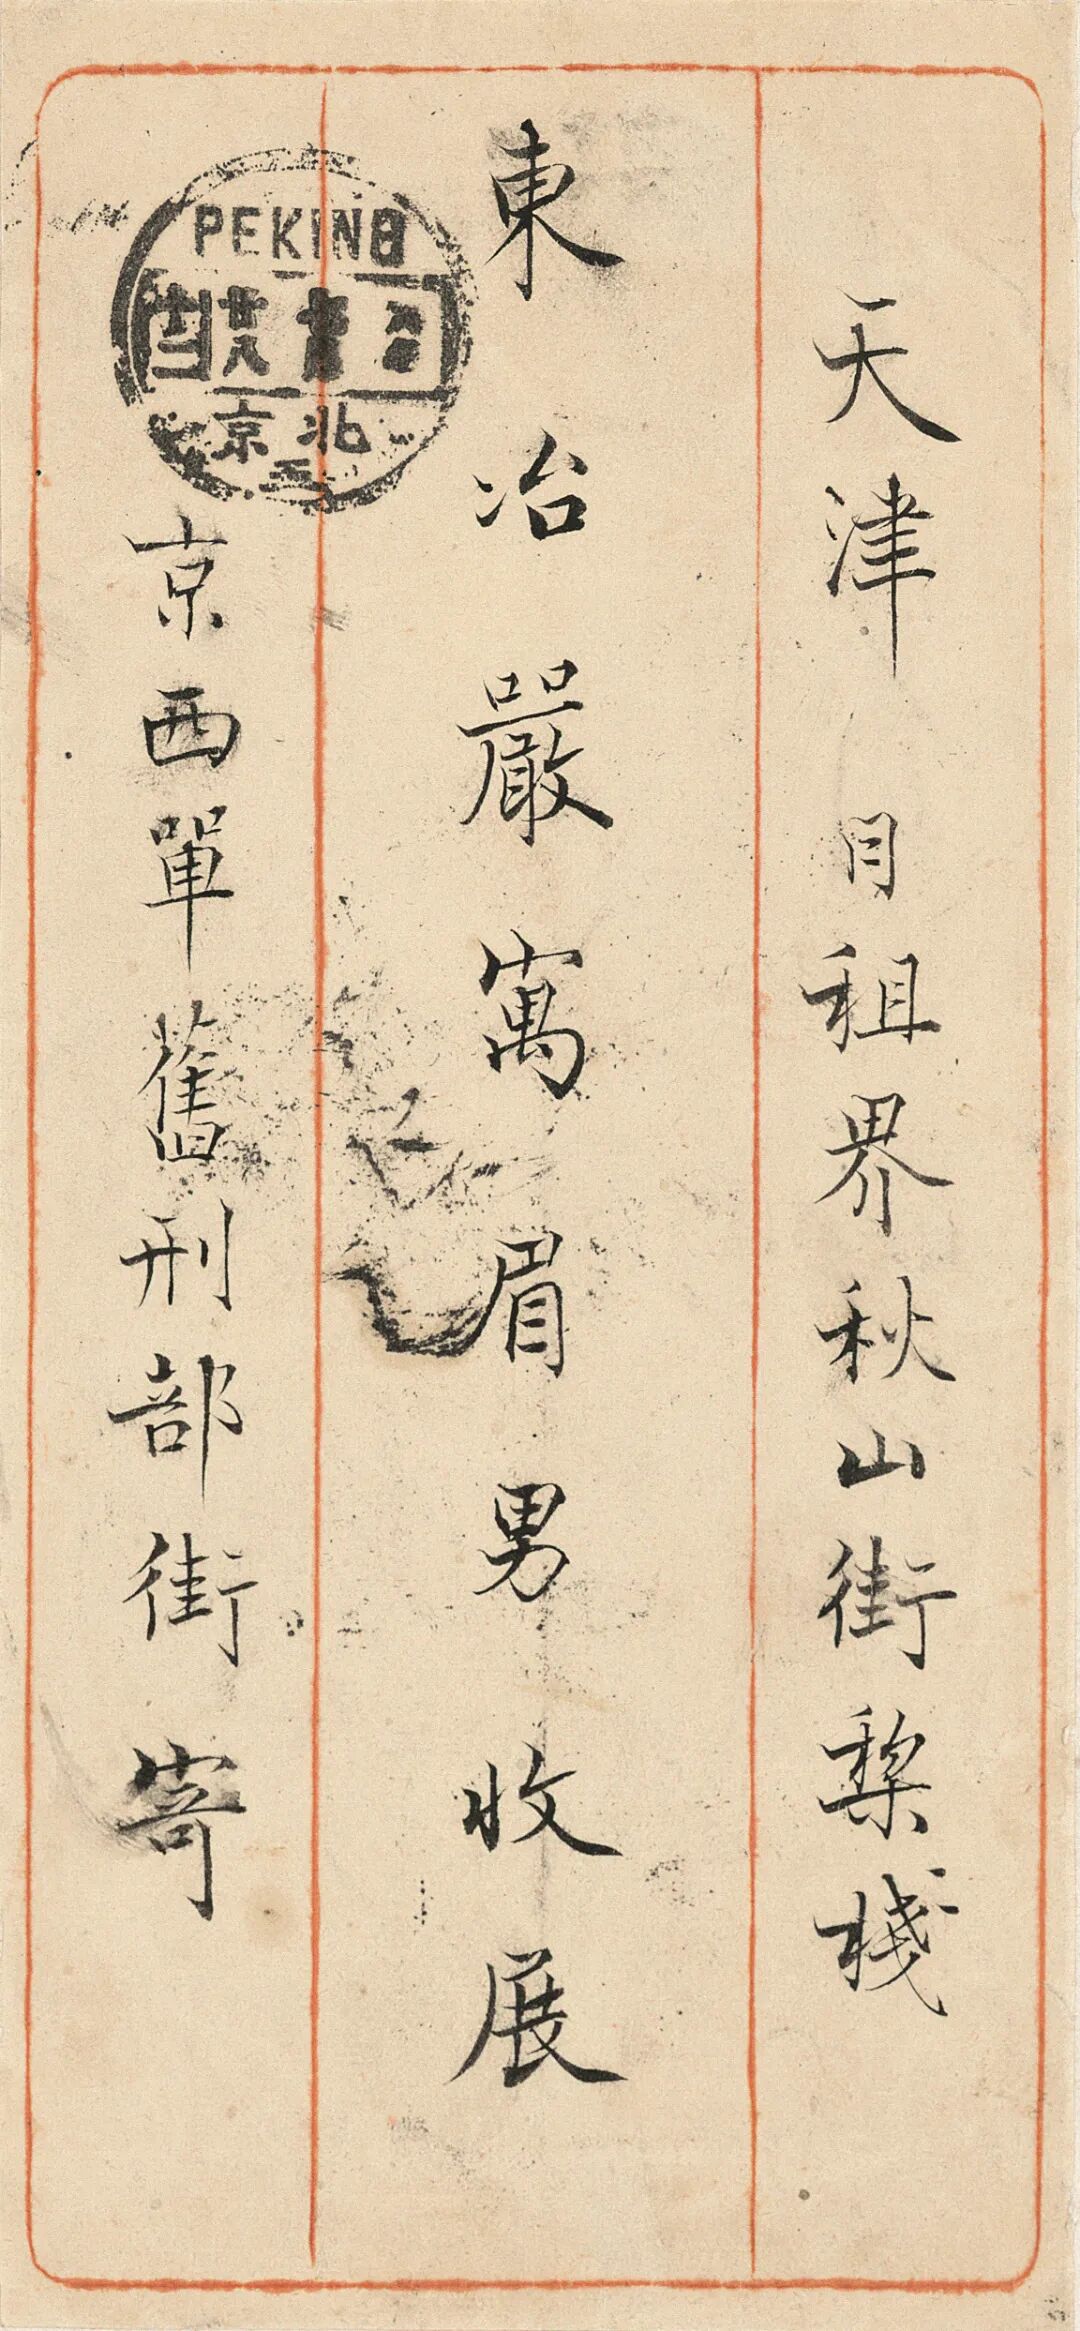 天津 日租界秋山街棃棧
東冶嚴寓眉男收展
京西單舊刑部街寄
PEKING
北京